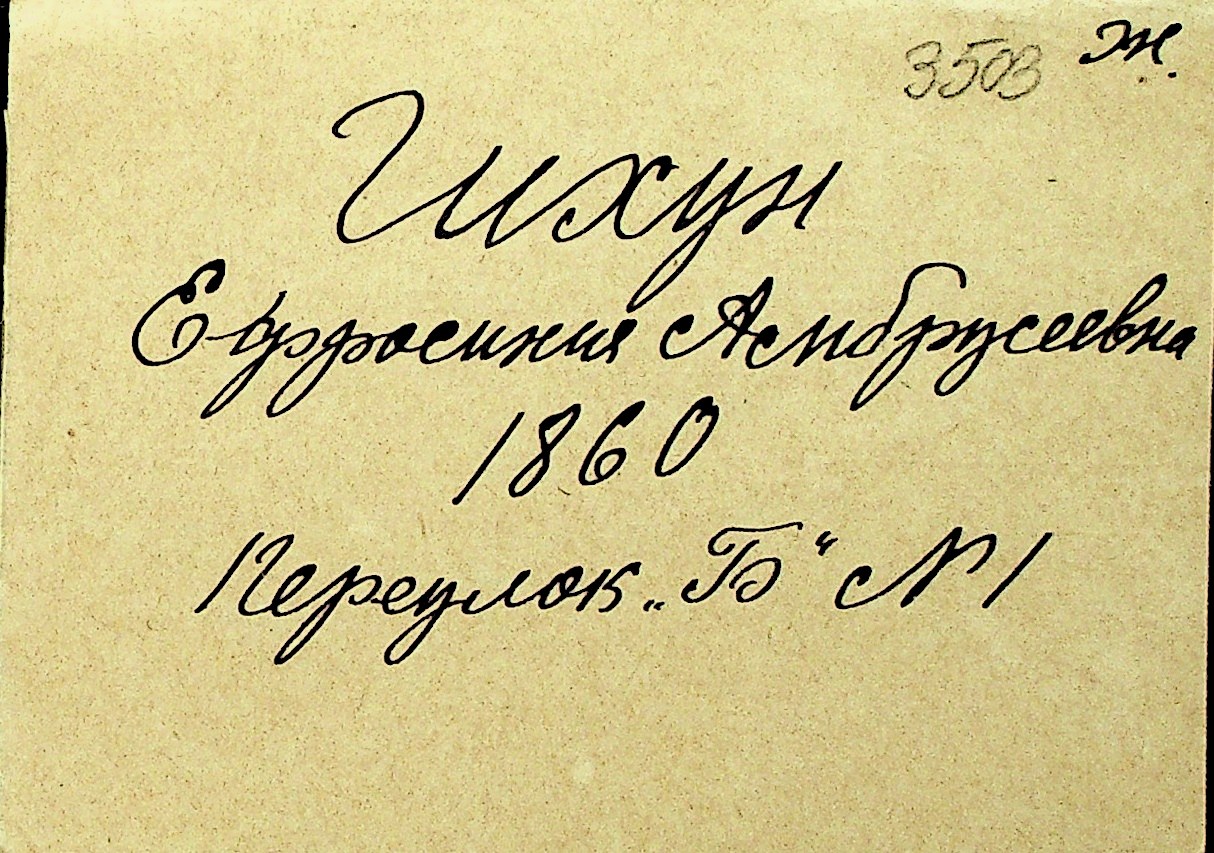 3503 ж.
Шихун
Ефросиния Амбрусеевна
1860
Переулок „Б“ № 1